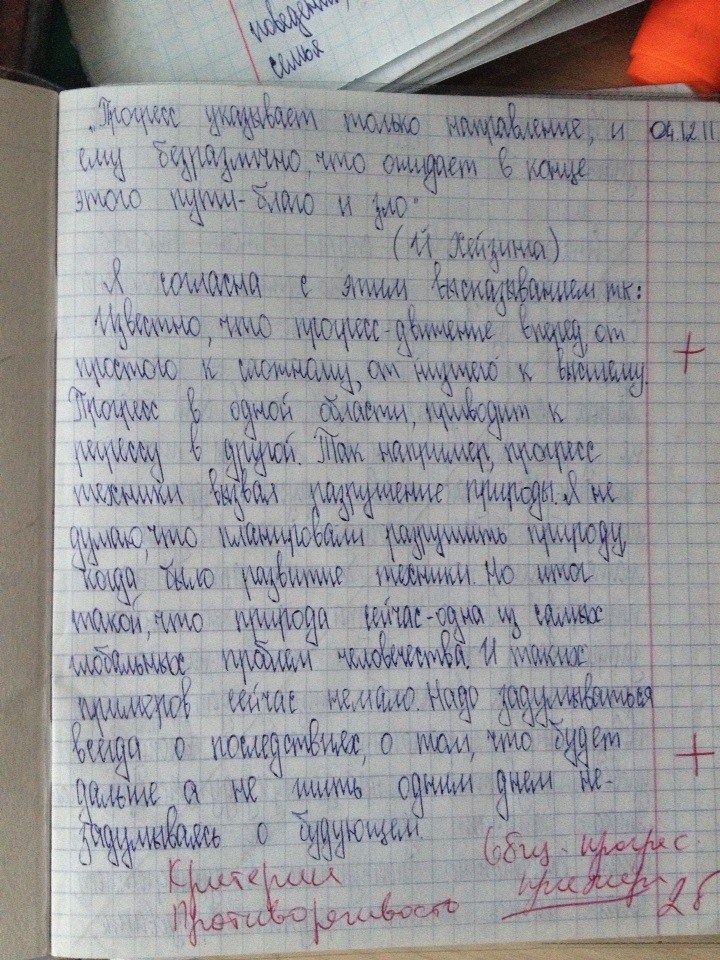 поведения,
семья
"Прогресс указывает только направление, и
04.12.11
ему безразлично, что ожидает в конце
этого пути-благо и зло"
(Й Хейзинга)
Я согласна с этим высказыванием тк:
Известно, что прогресс-движение вперед, от
простого к сложному, от низшего к высшему.
+
Прогресс в одной области, приводит к
регрессу в другой. Так например, прогресс
техники вызвал разрушение природы. Я не
думаю, что планировали разрушить природу,
когда было развитие техники. Но итог
такой, что природа сейчас-одна из самых
глобальных проблем человечества. И таких
примеров сейчас немало. Надо задумываться
всегда о последствиях, о том, что будет
+
дальше а не жить одним днем не-
задумываясь о будующем.
Критерии
прогрес
Противоречивость
пример
2б